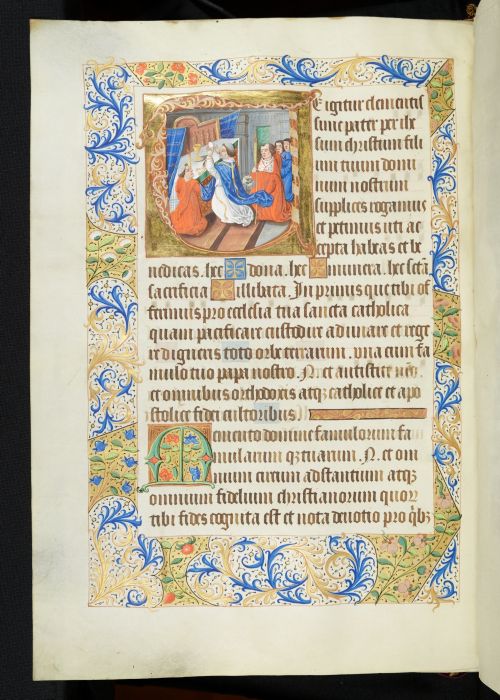 Te igitur clementis
sime pater per ihe
sum christum fili
um tuum domi
num nostrum
supplices rogamus
et petimus uti ac
cepta habeas et be
nedicas. hec dona. hec munera. hec scta
sacrificia illibata. In primis que tibi of
ferimus pro ecclesia tua sancta catholica
quam pacificare custodire adunare et rege
re digneris toto orbe terrarum. una cum fa
mulo tuo papa nostro. N. et antistite nro
et omnibus orthodoxis atq catholice et apo
stolice fidei cultoribus.
Memento domine famulorum fa
mularum qz tuarum. N. et om
nium circum adstantium atqz
omnium fidelium christianorum quor
tibi fides cognita est et nota devotio pro qbz